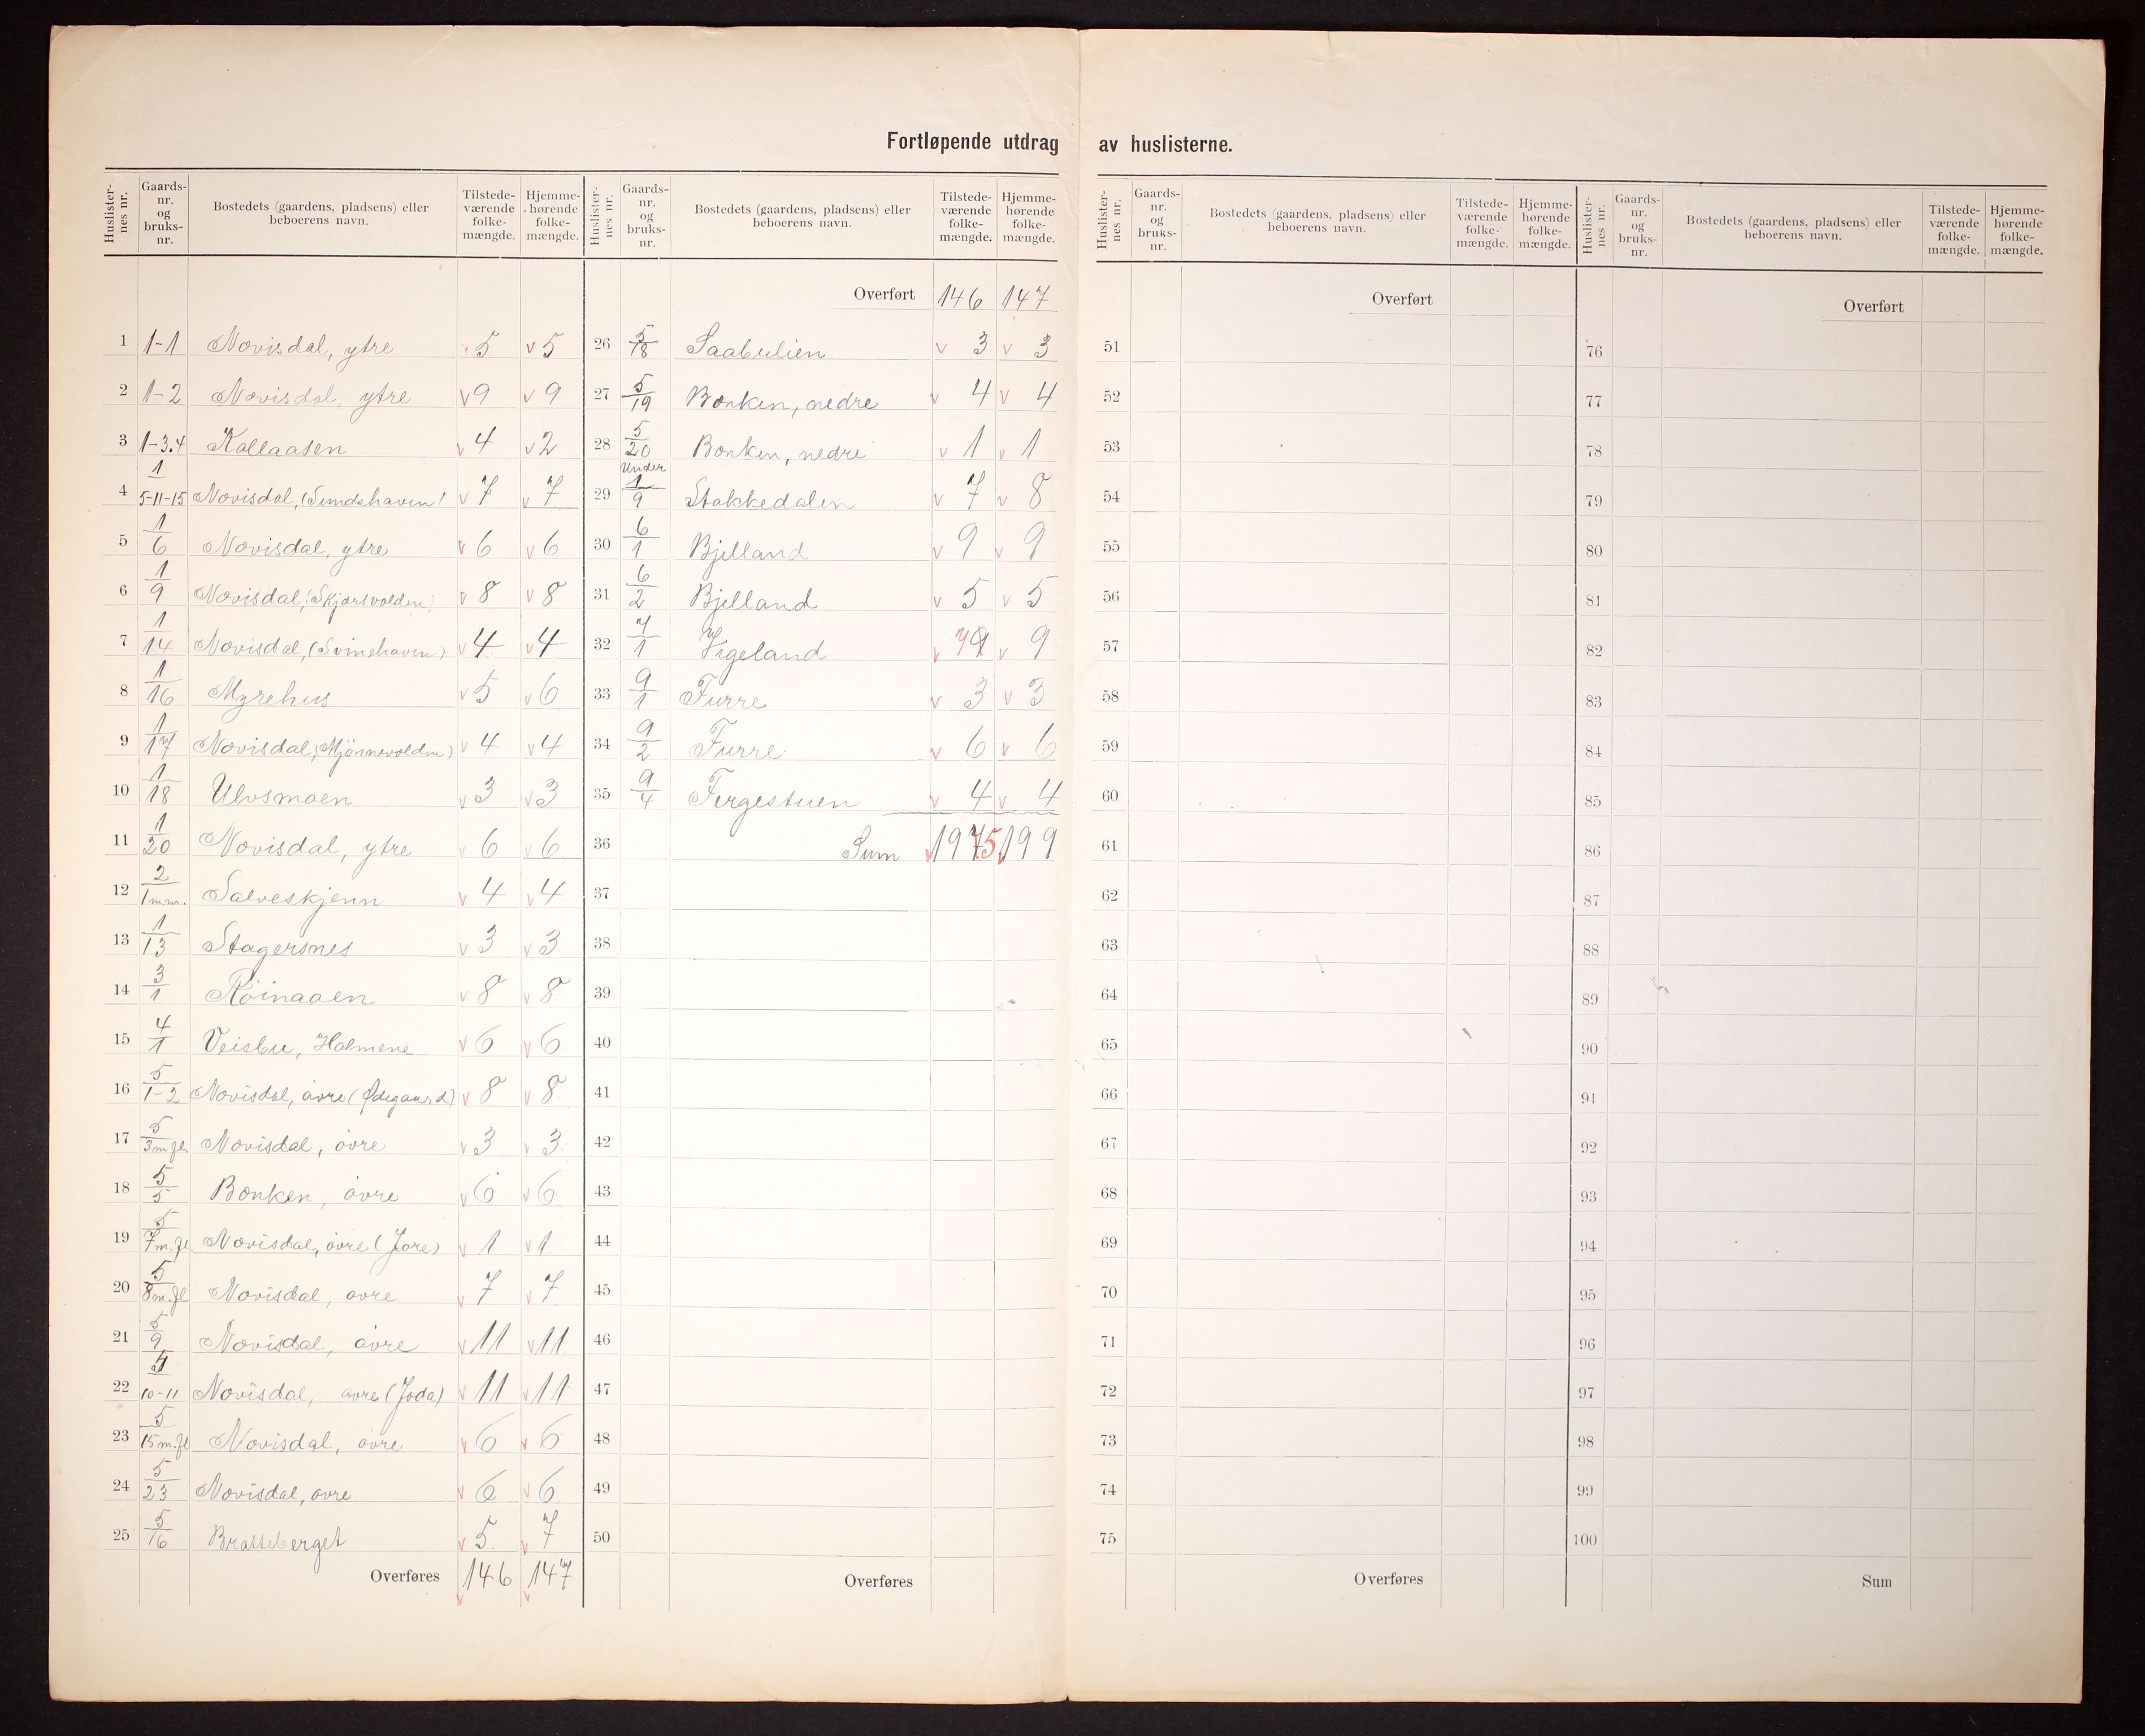 Fortløpende utdrag av huslisterne.
Huslister-nes nr. Gaards-nr. og bruks-nr. Bostedets (gaardens, pladsens) eller beboerens navn. Tilstede-værende folke-mængde. Hjemme-hørende folke-mængde.
1 1-1 Novisdal, ytre 5 5
2 1-2 Novisdal, ytre 9 9
3 1-3.4 Kallaasen 4 2
4 1/5-11-15 Novisdal, (Sundehaven) 7 7
5 1/6 Novisdal, ytre 6 6
6 1/9 Novisdal, (Skjærsvolden) 8 8
7 1/14 Novisdal, (Svinehaven) 4 4
8 1/16 Myrehus 5 6
9 1/17 Novisdal, (Mjönnevolden) 4 4
10 1/18 Ulvsmoen 3 3
11 1/20 Novisdal, ytre 6 6
12 2/1 m.m. Salveskjenn 4 4
13 1/13 Stagersnes 3 3
14 3/1 Röinaaen 8 8
15 4/1 Veisbu, Holmene 6 6
16 5/1-2 Novisdal, övre (Ødegaard) 8 8
17 5/3 m.fl. Novisdal, övre 3 3
18 5/5 Bonken, övre 6 6
19 5/7 m.fl. Novisdal, övre (Jore) 1 1
20 5/8 m.fl Novisdal, ovre 7 7
21 5/9 Novisdal, övre 11 11
22 5/10-11 Novisdal, ovre (Joda) 11 11
23 5/15 m.fl Novisdal, övre 6 6
24 5/23 Novisdal, ovre 6 6
25 5/16 Bratteberget 5 7
Overføres 146 147
Huslister-nes nr. Gaards-nr. og bruks-nr. Bostedets (gaardens, pladsens) eller beboerens navn. Tilstede-værende folke-mængde. Hjemme-hørende folke-mængde.
Overført 146 147
26 5/18 Saabulien 3 3
27 5/19 Bonken, nedre 4 4
28 5/20 Bonken, nedre 1 1
29 Under 1/9 Stakkedalen 7 8
30 6/1 Bjelland 9 9
31 6/2 Bjelland 5 5
32 7/1 Vigeland 7 9 9
33 9/1 Furre 3 3
34 9/2 Furre 6 6
35 9/4 Fergestuen 4 4
36 Sum 1975 199
37
38
39
40
41
42
43
44
45
46
47
48
49
50
Overføres
Huslister-nes nr. Gaards-nr. og bruks-nr. Bostedets (gaardens, pladsens) eller beboerens navn. Tilstede-værende folke-mængde. Hjemme-hørende folke-mængde.
Overført
51
52
53
54
55
56
57
58
59
60
61
62
63
64
65
66
67
68
69
70
71
72
73
74
75
Overføres
Huslister-nes nr. Gaards-nr. og bruks-nr. Bostedets (gaardens, pladsens) eller beboerens navn. Tilstede-værende folke-mængde. Hjemme-hørende folke-mængde.
Overført
76
77
78
79
80
81
82
83
84
85
86
87
88
89
90
91
92
93
94
95
96
97
98
99
100
Sum